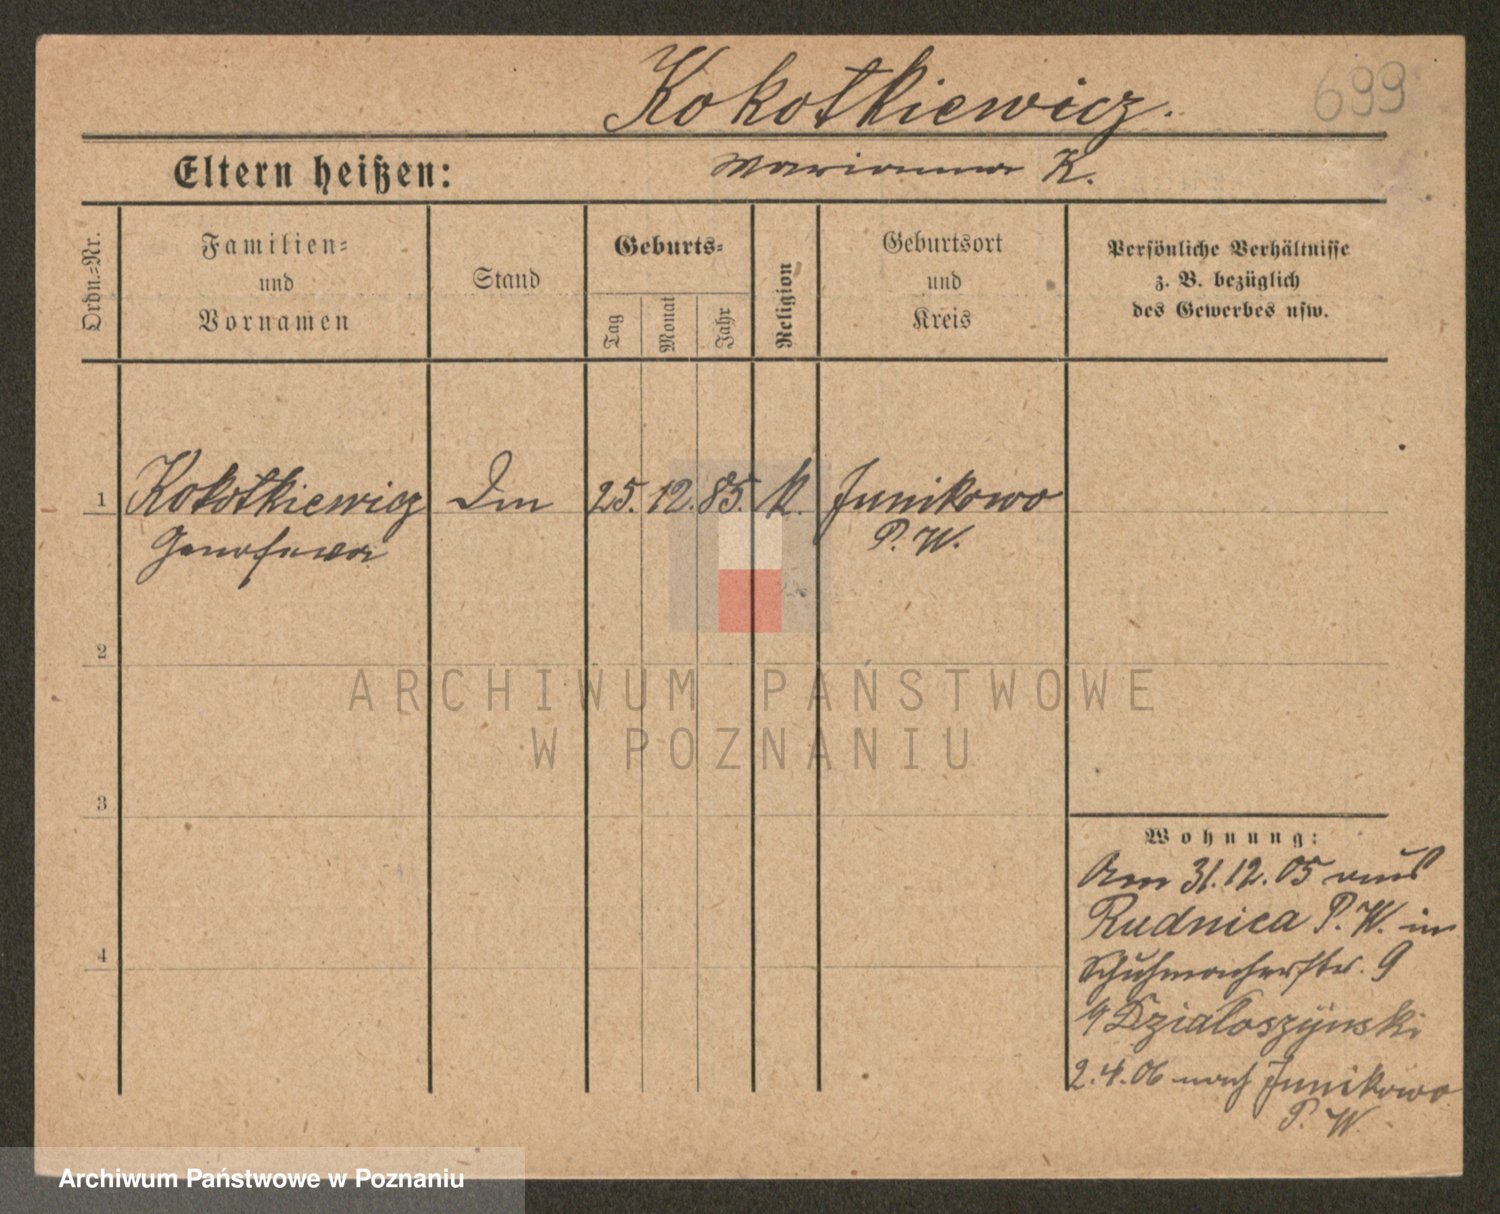 Kokotkiewicz.
699
Eltern heißen:
Marianna K.
Ordn.=Nr.
Familien=
und
Vornamen
Stand
Geburts=
Tag
Monat
Jahr
Religion
Geburtsort
und
Kreis
Persönliche Verhältnisse
z. B. bezüglich
des Gewerbes usw.
1 Kokotkiewicz Dm 25. 12. 85. k. Junikowo
Genofewa P. W.
2
ARCHIWUM PAŃSTWOWE
W POZNANIU
3
Wohnung:
Am 31.12.05 aus
Rudnica P. W. in
Schuhmacherstr. 9
Działoszyński
4
2.4.06 nach Junikowo
P. W.
Archiwum Państwowe w Poznaniu